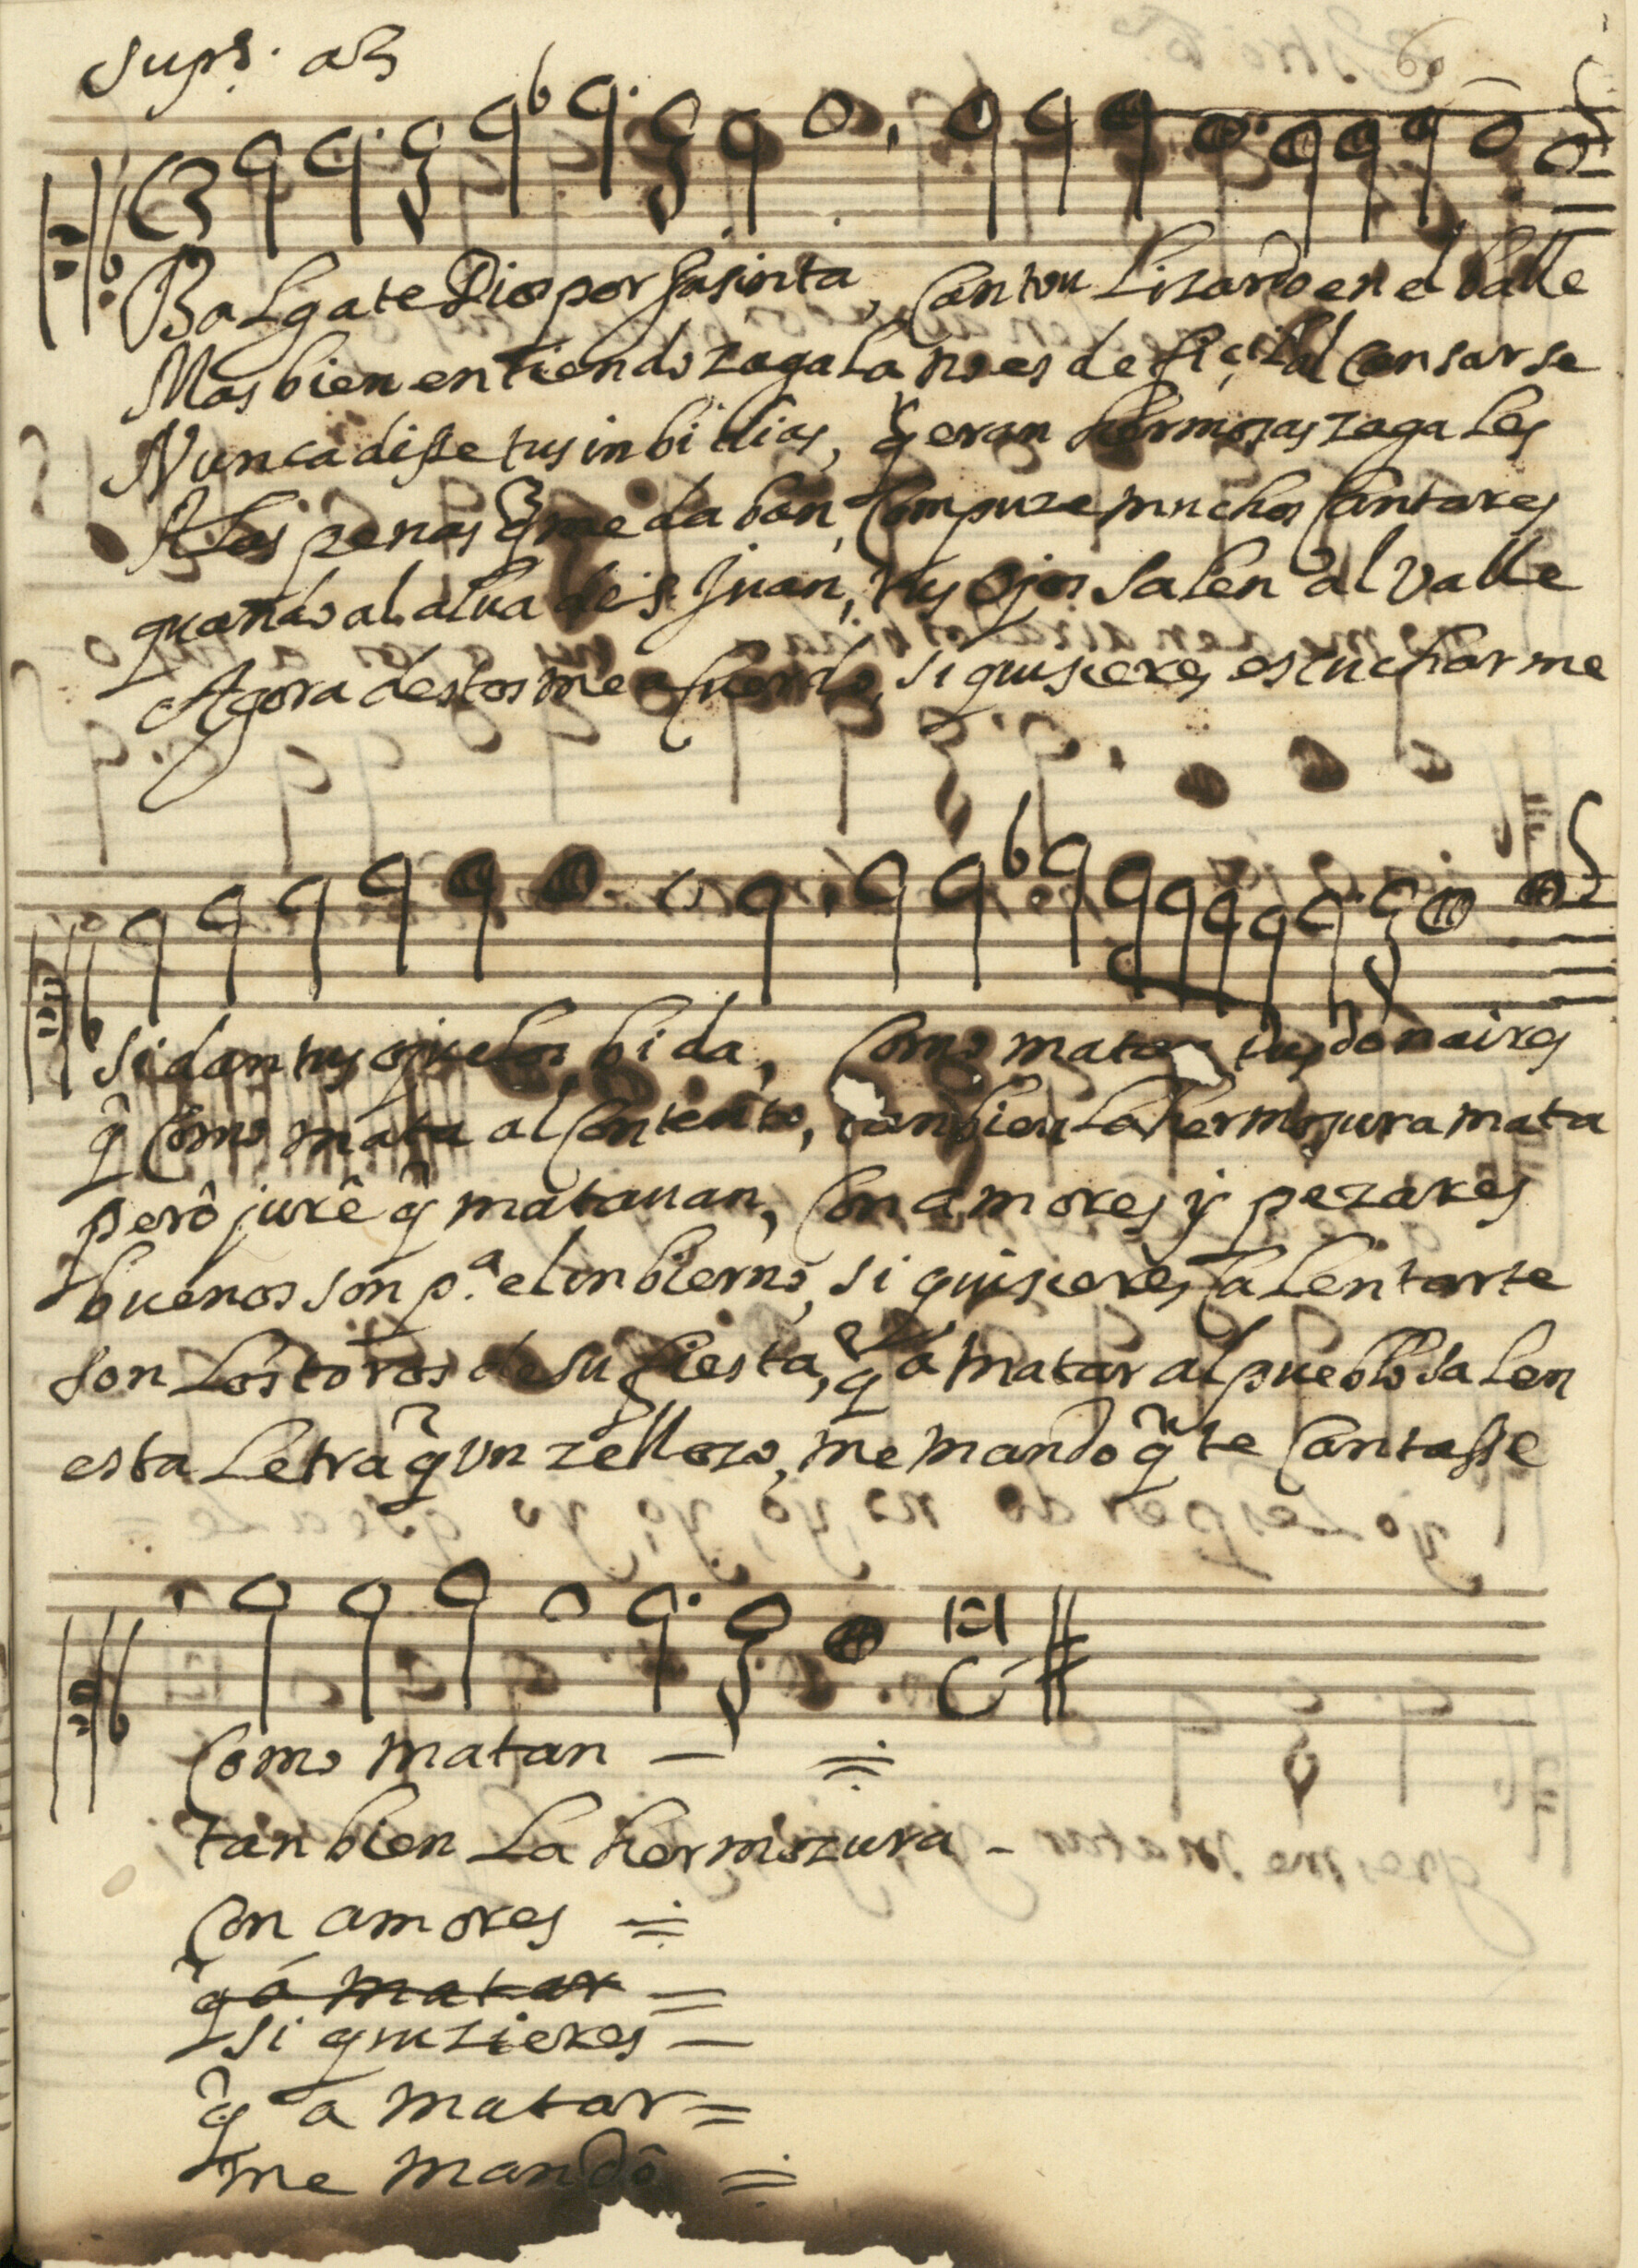 Supr.^s a3
Balgate Dios por Jasinta, Canton Lizardo en el balle
Mas bien entiendo zagala no es de ficil cansarse
Nunca disse tus inbidias, q̃ eran hermozas zagales
A las penas q̃ me daban, Compuze muchos Cantares
quando al alua de S. Juan, tus ojos salen al valle
Agora destos me acuerdo, si quisieres escucharme
si dan tus ojuelos bida, Como matan tus donaires
q̃ Como mata al Contento, tanbien la hermozura mata
però jurê q̃ matauan, Con amores y pezares
buenos son p.^a el inbierno, si quisieres Calentarte
son los toros de su fiesta, q̃ a matar al pueblo salen
esta letra q̃ Vn zellozo, me mandò q̃ te Cantasse
Como matan — =
tanbien la hermozura -
Con amores =
q̃ a matar =
si quizieres —
q̃ a matar =
me mandô =